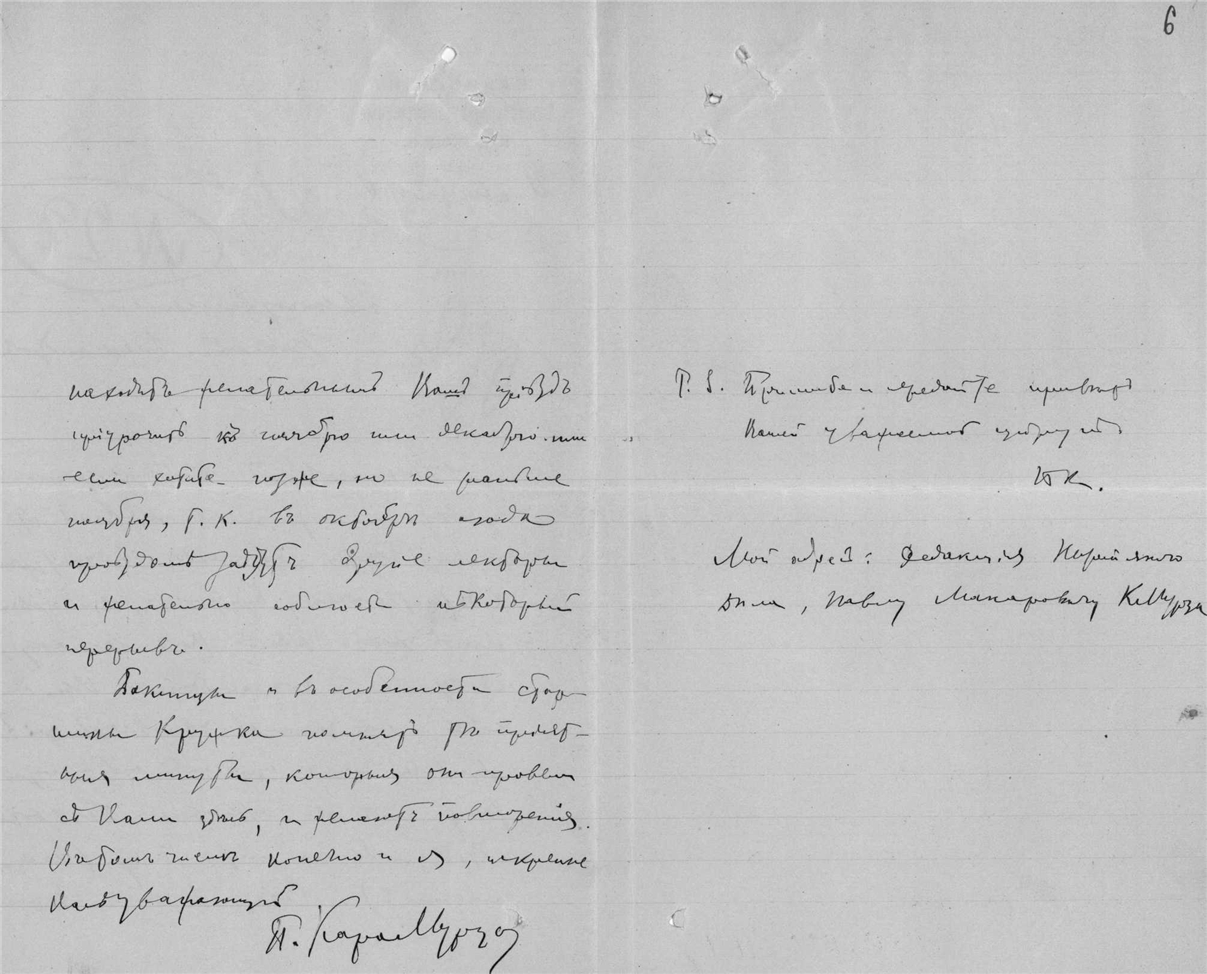 6
находитъ желательнымъ Вашъ пріѣздъ
пріурочить къ ноябрю или декабрю или
если хотите позже, но не раньше
ноября, т. к. въ октябрѣ сюда
проѣздомъ заѣдутъ другіе лекторы
и желательно соблюсти нѣкоторый
перерывъ.
Бакинцы и въ особенности стар-
шины Кружка помнятъ тѣ пріят-
ныя минуты, которыя они провели
съ Вами здѣсь, и желаютъ повторенія.
Въ томъ числѣ конечно и я, искренне
Васъ уважающій
П. Кара-Мурза
P. S. Прошу передайте привѣтъ
Вашей уважаемой супругѣ
ПК.
Мой адрес: Редакція Нефтяного
Дѣла, Павлу Макаровичу К-Мурза